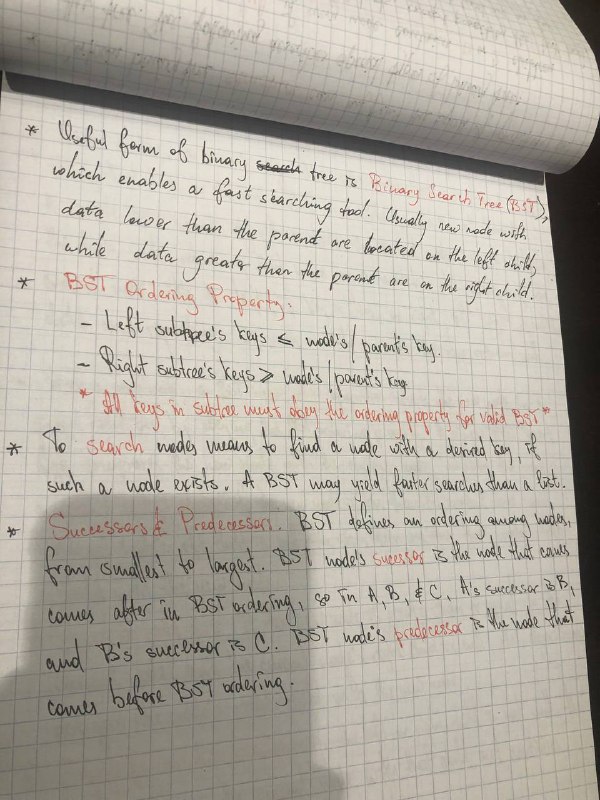 * Useful form of binary search tree is Binary Search Tree (BST),
which enables a fast searching tool. Usually new node with
data lower than the parent are located on the left child,
while data greater than the parent are on the right child.
* BST Ordering Property.
- Left subtree's keys ≤ node's/parent's key.
- Right subtree's keys ≥ node's/parent's key
* All keys in subtree must obey the ordering property for valid BST *
* To search nodes means to find a node with a desired key, if
such a node exists. A BST may yield faster searches than a list.
* Successors & Predecessors. BST defines an ordering among nodes,
from smallest to largest. BST node's sucessor is the node that comes
comes after in BST ordering, so in A, B, & C, A's successor is B,
and B's successor is C. BST node's predecessor is the node that
comes before BST ordering.